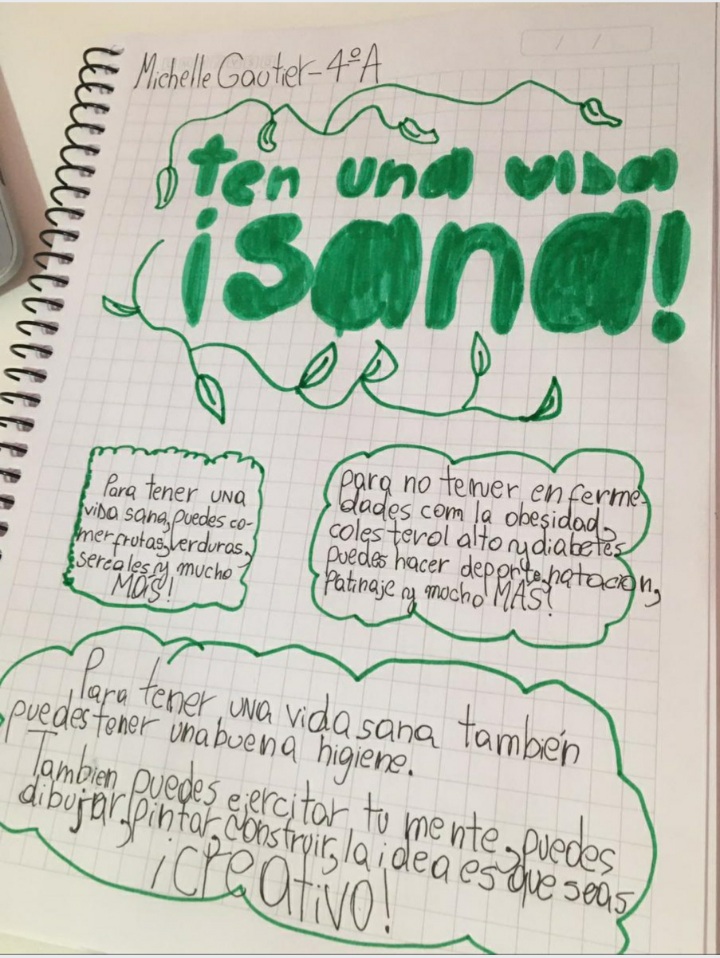 Michelle Gautier-4ºA
ten una vida
¡sana!
Para tener una
vida sana, puedes co-
mer frutas, verduras,
sereales y mucho
MÁS!
para no tenver enferme-
dades com la obesidad,
colesterol alto y diabetes
puedes hacer deporte, natación,
Patinaje y mocho MÁS!
Para tener una vida sana también
puedes tener una buena higiene.
Tambien puedes ejercitar tu mente, puedes
dibujar, pintar, construir, la idea es que seas
¡creativo!